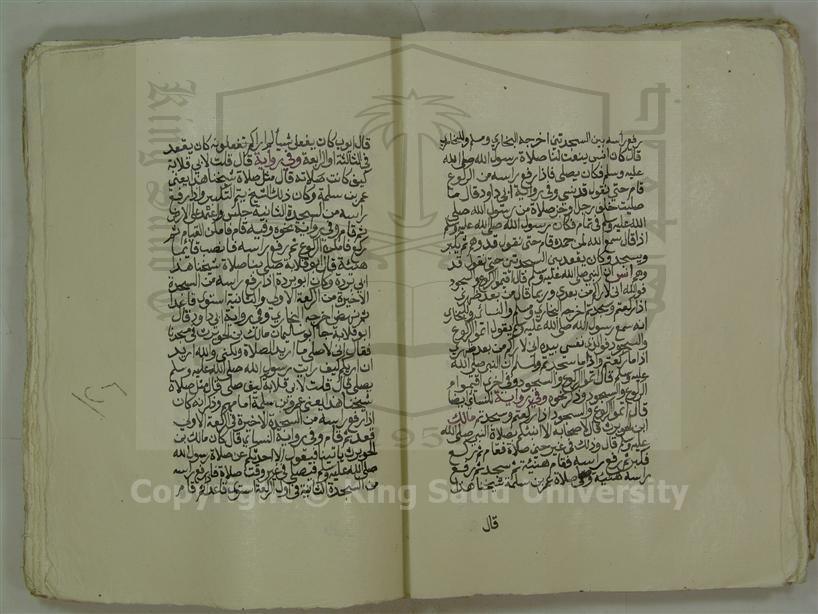 رفع راسه بين السجدتين اخرجه البخاري ومسلم وللبخاري
قال كان انس ينعت لنا صلاة رسول الله صلى الله
عليه وسلم فكان يصلي فاذا رفع راسه من الركوع
قام حتى يقول قد نسي وفي رواية ابي داود قال ما
صليت خلف رجل اوجز صلاة من رسول الله صلى
الله عليه وسلم في تمام فكان رسول الله صلى الله عليه وسلم
اذا قال سمع الله لمن حمده قام حتى نقول قد وهم ثم يكبر
ويسجد وكان يقعد بين السجدتين حتى نقول قد
وهم انس ان النبي صلى الله عليه وسلم قال اتموا الركوع والسجود
فوالله اني لاراكم من بعدي وربما قال من بعد ظهري
اذا ركعتم وسجدتم اخرجه البخاري ومسلم والنسائي وللبخاري
انه سمع رسول الله صلى الله عليه وسلم يقول اتموا الركوع
والسجود فوالذي نفسي بيده اني لاراكم من بعد ظهري
اذا ما ركعتم واذا ما سجدتم ولمسلم ان النبي صلى الله
عليه وسلم قال اتموا الركوع والسجود وفي اخرى اقيموا
الركوع والسجود وذكر نحوه وفي رواية النسائي ايضا
قال اتموا الركوع والسجود اذا ركعتم وسجدتم مالك
ابن الحويرث قال لاصحابه الا انبئكم بصلاة النبي صلى الله
عليه وسلم قال وذلك في غير حين صلاة فقام ثم ركع
فكبر ثم رفع راسه فقام هنية ثم سجد ثم رفع
راسه هنية وصلى صلاة عمرو بن سلمة شيخنا هذا
قال
قال ايوب كان يفعل شيا لم اراكم تفعلونه كان يقعد
في الثالثة او الرابعة وفي رواية قال قلت لابي قلابة
كيف كانت صلاته قال مثل صلاة شيخنا هذا يعني
عمرو بن سلمة وكان ذلك الشيخ يتم التكبير واذا رفع
راسه من السجدة الثانية جلس واعتمد على الارض
ثم قام وفي رواية نحوه وفيه قام فامكن القيام ثم
ركع فامكن الركوع ثم رفع راسه فانصب قائما
هنية قال ابو قلابة صلى بنا صلاة شيخنا هذا
ابي بريد وكان ابو بريد اذا رفع راسه من السجدة
الاخيرة من الركعة الاولى والثانية استوى قاعدا
ثم نهض اخرجه البخاري وفي رواية ابي داود قال
ابو قلابة جاء ابو سليمان مالك بن الحويرث في مسجدنا
فقال اني لاصلي ما اريد الصلاة ولكني والله اريد
ان اريكم كيف رايت رسول الله صلى الله عليه وسلم
يصلي قال قلت لابي قلابة كيف صلى قال مثل صلاة
شيخنا هذا يعني عمرو بن سلمة امامهم وذكر انه كان
اذا رفع راسه من السجدة الاخيرة في الركعة الاولى
قعد ثم قام وفي رواية النسائي قال كان مالك بن
الحويرث ياتينا فيقول الا احدثكم عن صلاة رسول الله
صلى الله عليه وسلم فيصلي في غير وقت صلاة فاذا رفع راسه
من السجدة الثانية في اول الركعة استوى قاعدا ثم قام
Copyright © King Saud University
1957